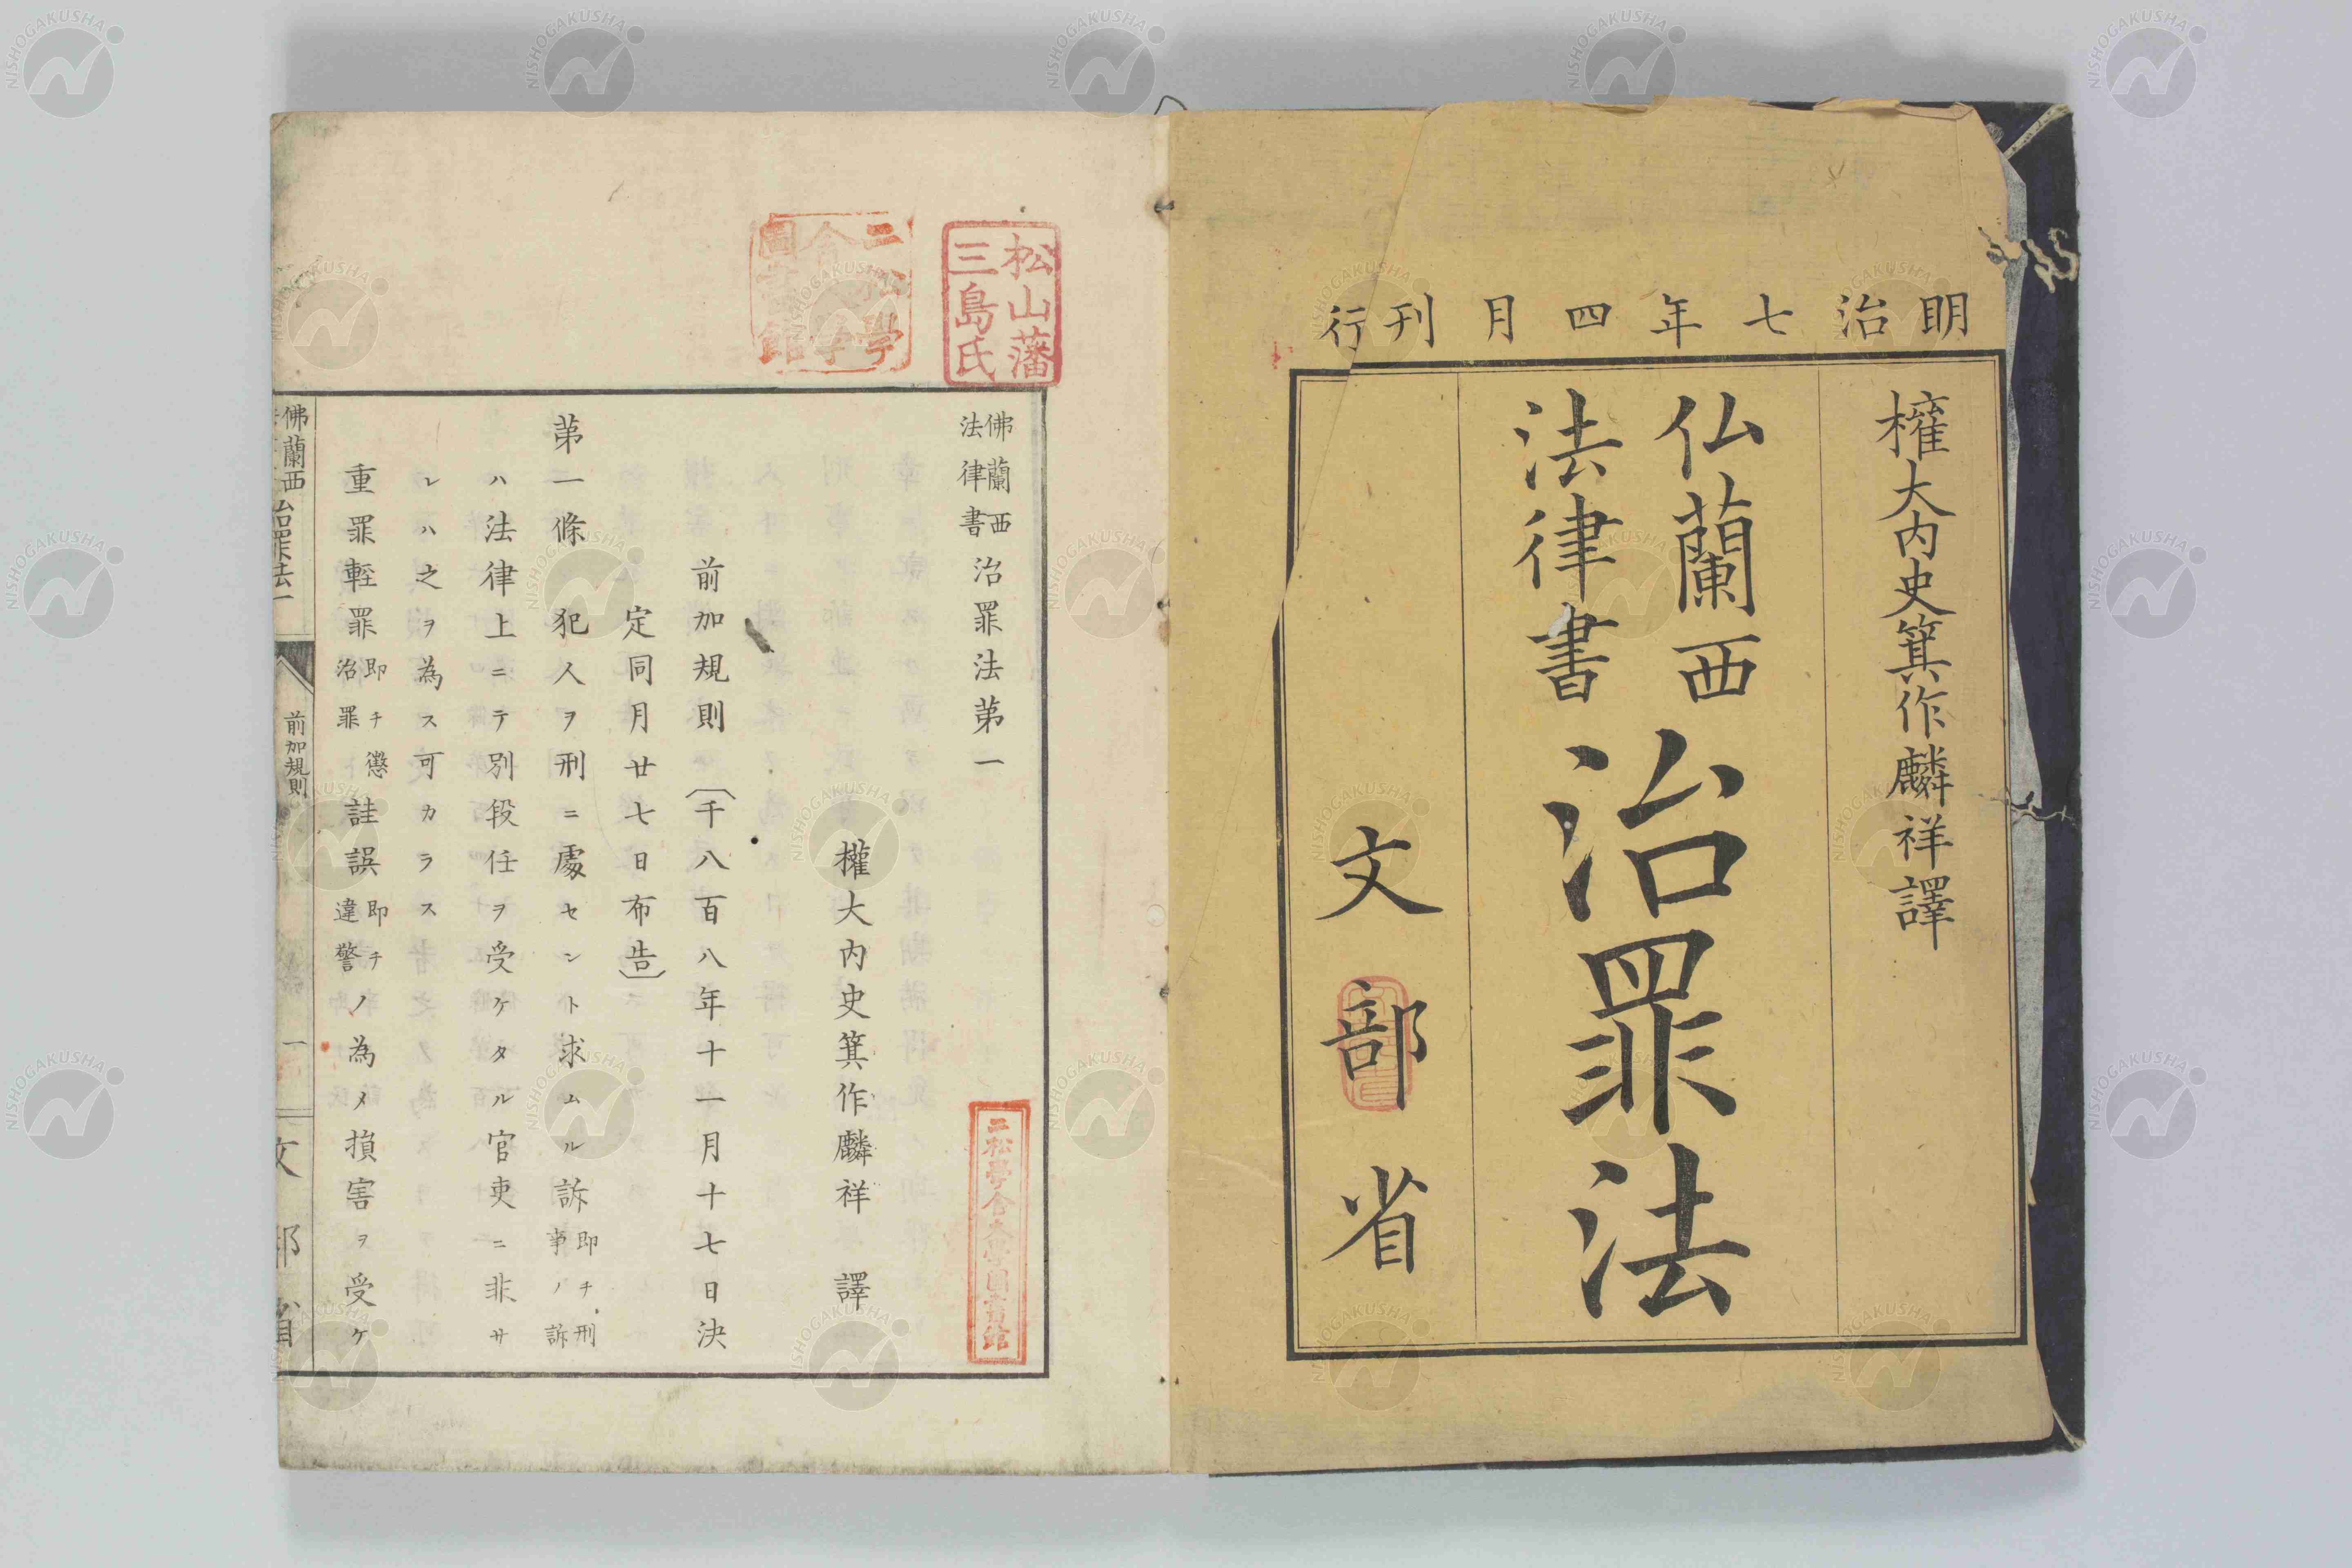 明治七年四月刊行
権大内史箕作麟祥譯
仏蘭西
法律書
治罪法
文部省
松山藩
三島氏
二松學
舎大學
圖書館
佛蘭西
法律書
治罪法第一
權大内史箕作麟祥 譯
前加規則〔千八百八年十一月十七日決
定同月廿七日布告〕
第一條 犯人ヲ刑ニ處セント求ムル訴即チ刑事ノ訴
ハ法律上ニテ別段任ヲ受ケタル官吏ニ非サ
レハ之ヲ為ス可カラス
重罪輕罪即チ懲治罪註誤即チ違警ノ為メ損害ヲ受ケ
二松學舎大學圖書館
佛蘭西
治罪法一
前加規則
一
文部省
NISHOGAKUSHA